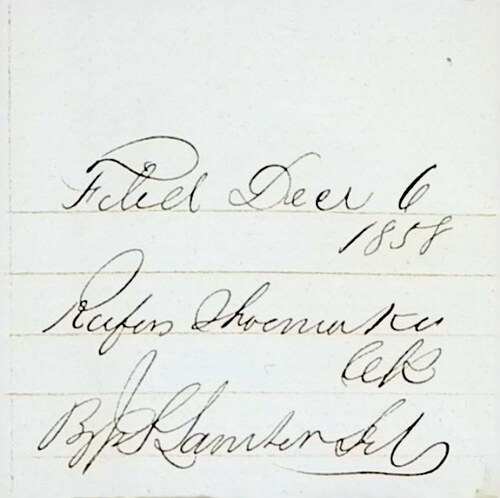 Filed Decr 6
1858
Rufus Shoemaker
Clk
By J S Lambert Dept